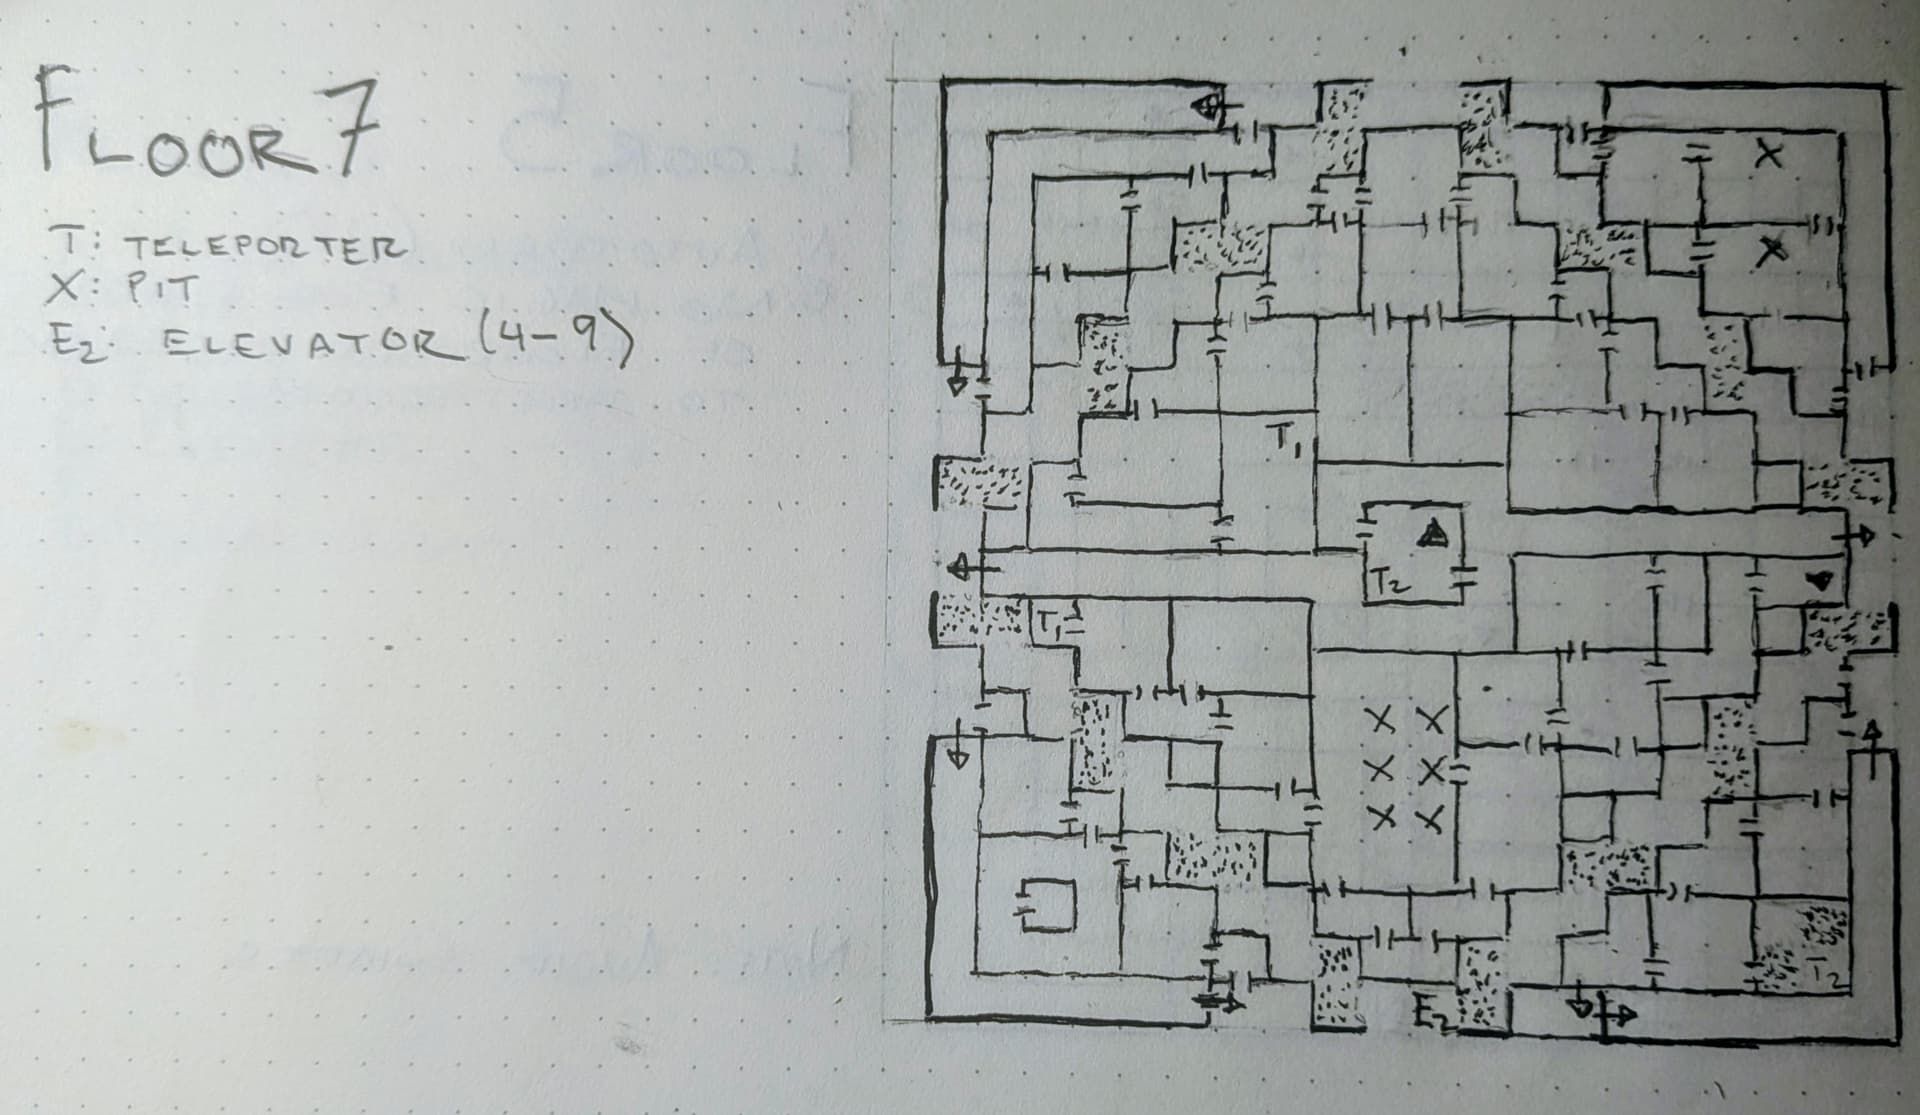 FLOOR 7
T: TELEPORTER
X: PIT
E2: ELEVATOR (4-9)
X
X
T1
T2
T1
X X
X X
X X
T2
E2